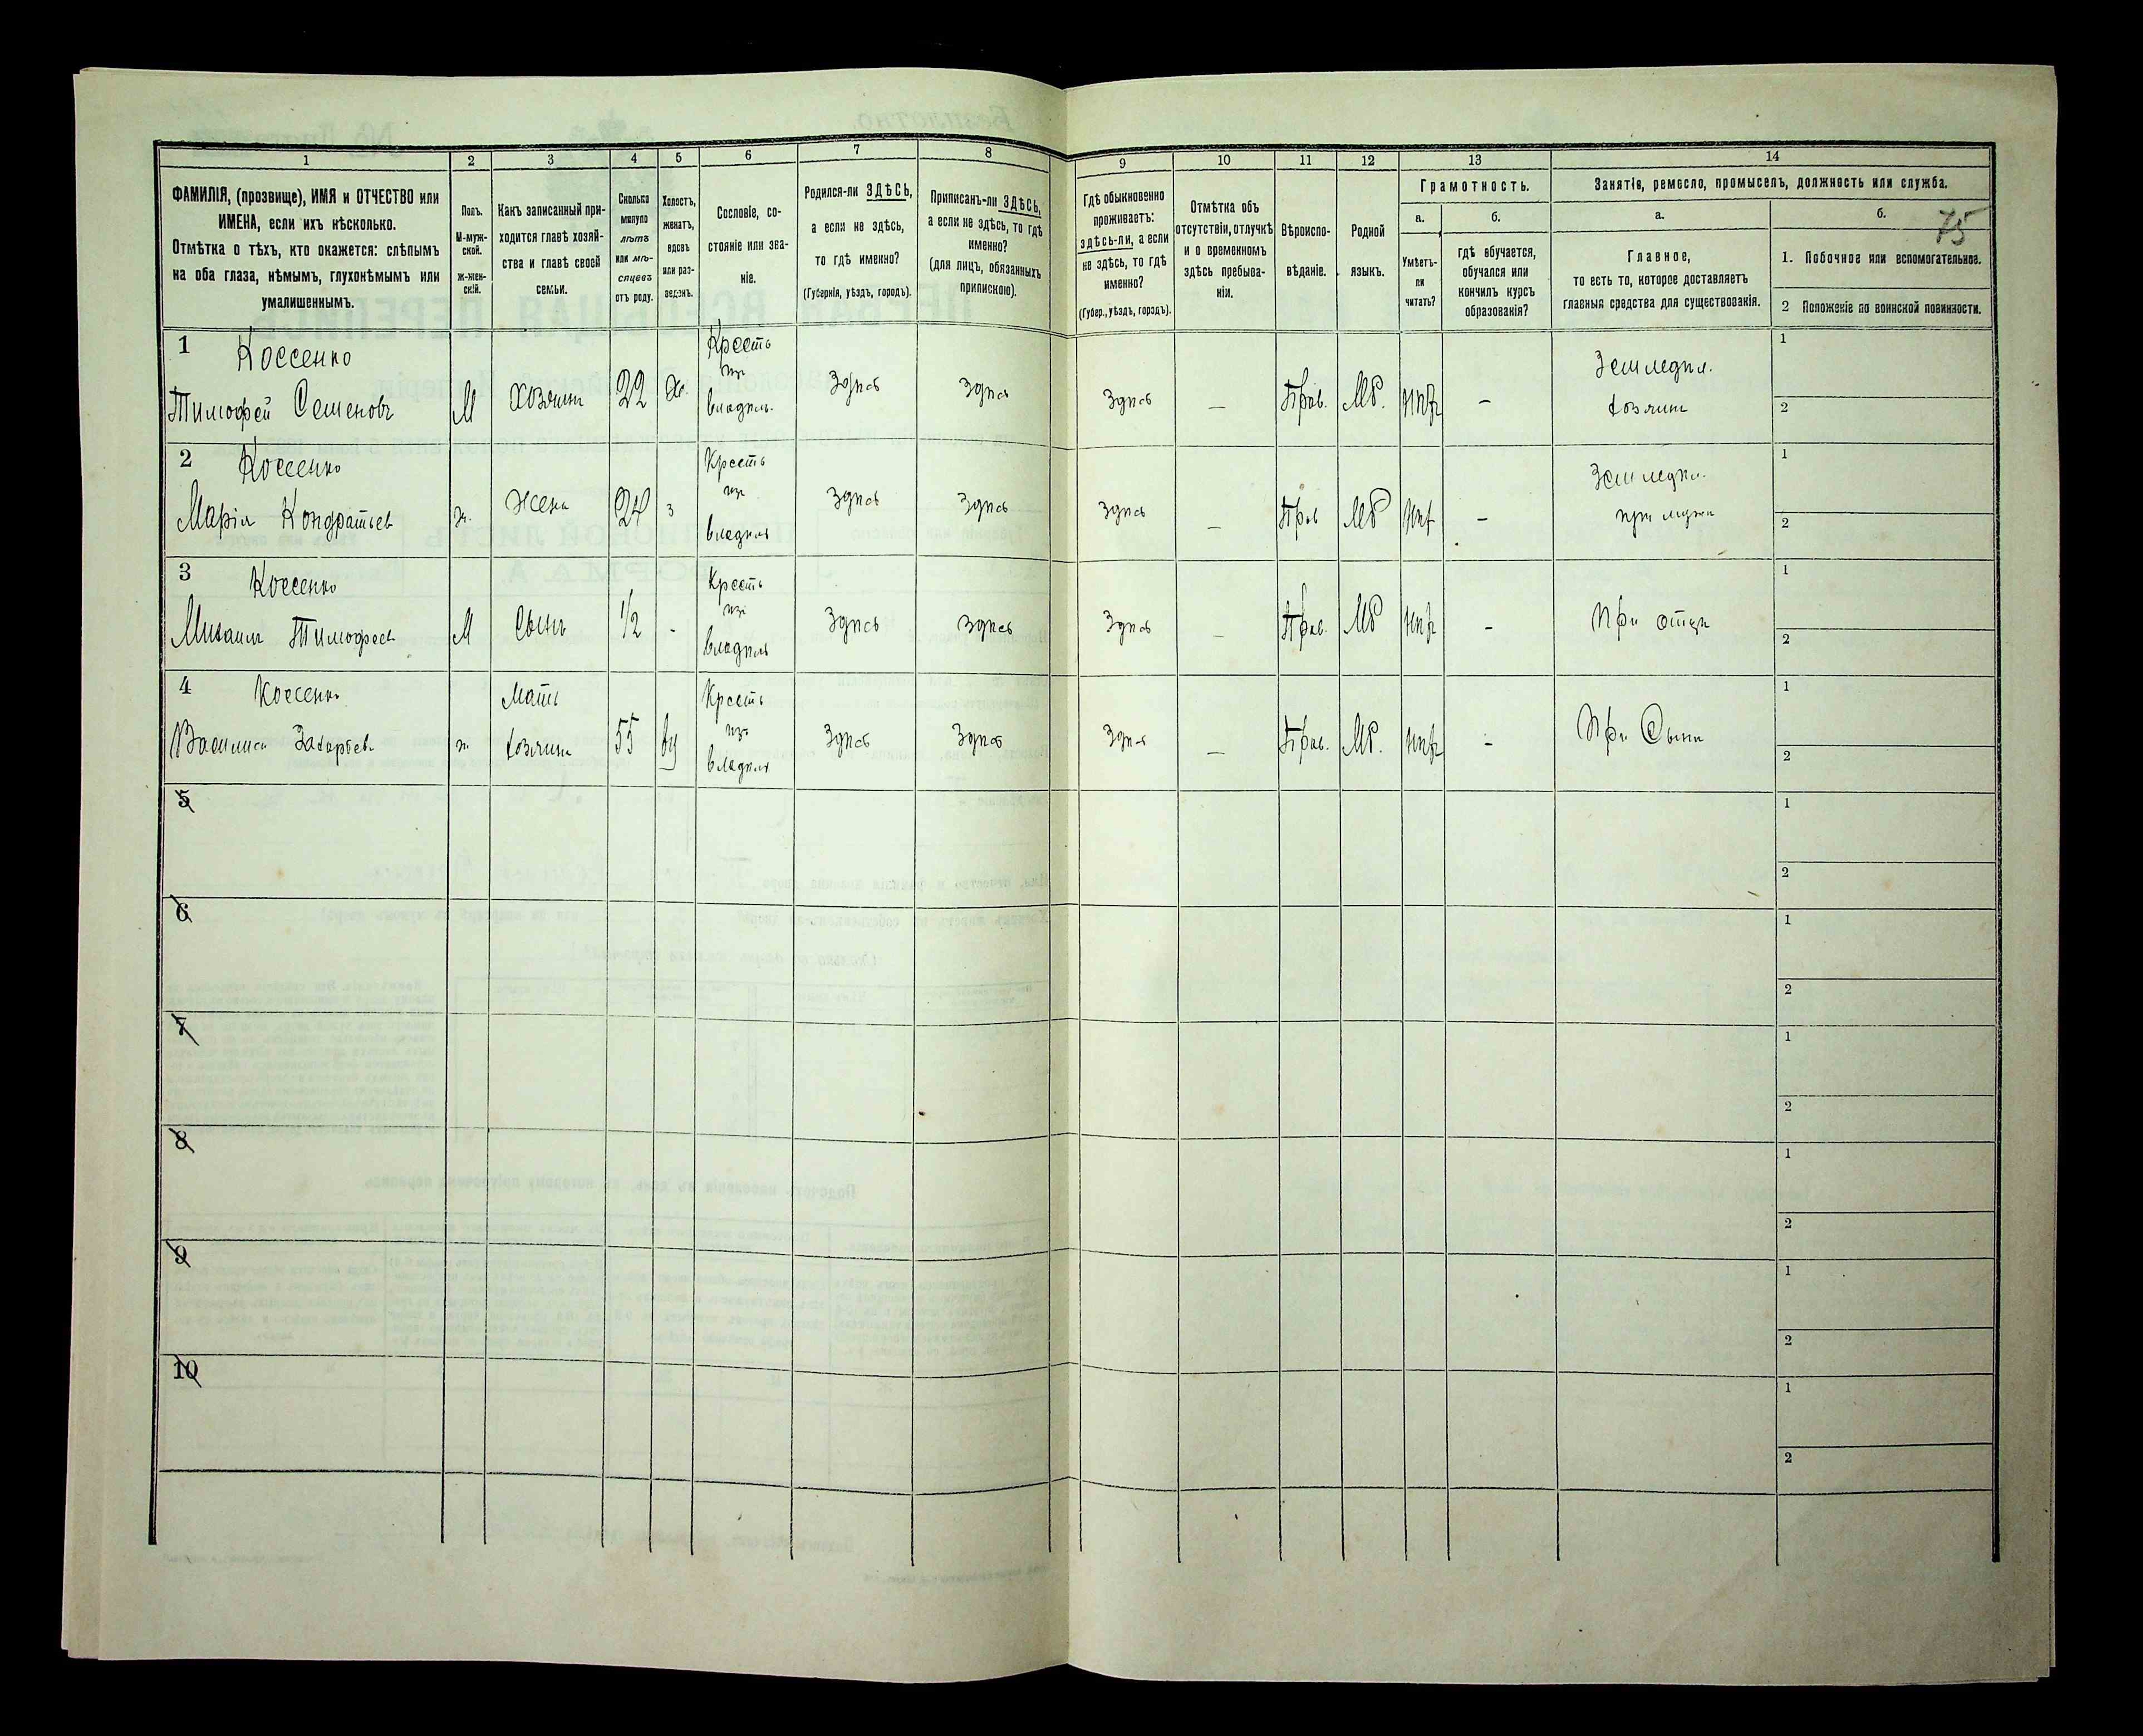 1 2 3 4 5 6 7 8 9 10 11 12 13 14
ФАМИЛІЯ, (прозвище), ИМЯ и ОТЧЕСТВО или
ИМЕНА, если ихъ нѣсколько.
Отмѣтка о тѣхъ, кто окажется: слѣпымъ
на оба глаза, нѣмымъ, глухонѣмымъ или
умалишеннымъ.
Полъ.
М-муж-
ской.
ж-жен-
скій.
Какъ записанный при-
ходится главѣ хозяй-
ства и главѣ своей
семьи.
Сколько
минуло
лѣтъ
или мѣ-
сяцевъ
отъ роду.
Холостъ,
женатъ,
вдовъ
или раз-
веденъ.
Сословіе, со-
стояніе или зва-
ніе.
Родился-ли ЗДѢСЬ,
а если не здѣсь,
то гдѣ именно?
(Губернія, уѣздъ, городъ).
Приписанъ-ли ЗДѢСЬ,
а если не здѣсь, то гдѣ
именно?
(для лицъ, обязанныхъ
припискою).
Гдѣ обыкновенно
проживаетъ:
здѣсь-ли, а если
не здѣсь, то гдѣ
именно?
(Губер., уѣздъ, городъ).
Отмѣтка объ
отсутствіи, отлучкѣ
и о временномъ
здѣсь пребыва-
ніи.
Вѣроиспо-
вѣданіе.
Родной
языкъ.
Грамотность.
а. б.
Умѣетъ-
ли
читать?
гдѣ обучается,
обучался или
кончилъ курсъ
образованія?
Занятіе, ремесло, промыселъ, должность или служба.
а. б.
75
Главное,
то есть то, которое доставляетъ
главныя средства для существованія.
1. Побочное или вспомогательное.
2 Положеніе по воинской повинности.
1 Коссенко Кресть 1
изъ Земледѣл.
Тимофей Семеновъ М Хозяинъ 22 владѣль. Здѣсь Здѣсь Здѣсь — Прав. МР. — хозяинъ 2
2 Коссенко Кресть 1
изъ Земледѣл.
Марія Кондратьев ж. Жена 24 з владѣль Здѣсь Здѣсь Здѣсь — Прав МР — при мужѣ 2
3 Коссенко Кресть 1
изъ
Михаилъ Тимофеев М Сынъ 1/2 - владѣль Здѣсь Здѣсь Здѣсь — Прав. МР — При отцѣ 2
4 Коссенко Мать Кресть 1
изъ
Василиса Захарьев ж хозяина 55 ву владѣль Здѣсь Здѣсь Здѣсь — Прав. МР. — При Сынѣ 2
5 1
2
6 1
2
7 1
2
8 1
2
9 1
2
10 1
2